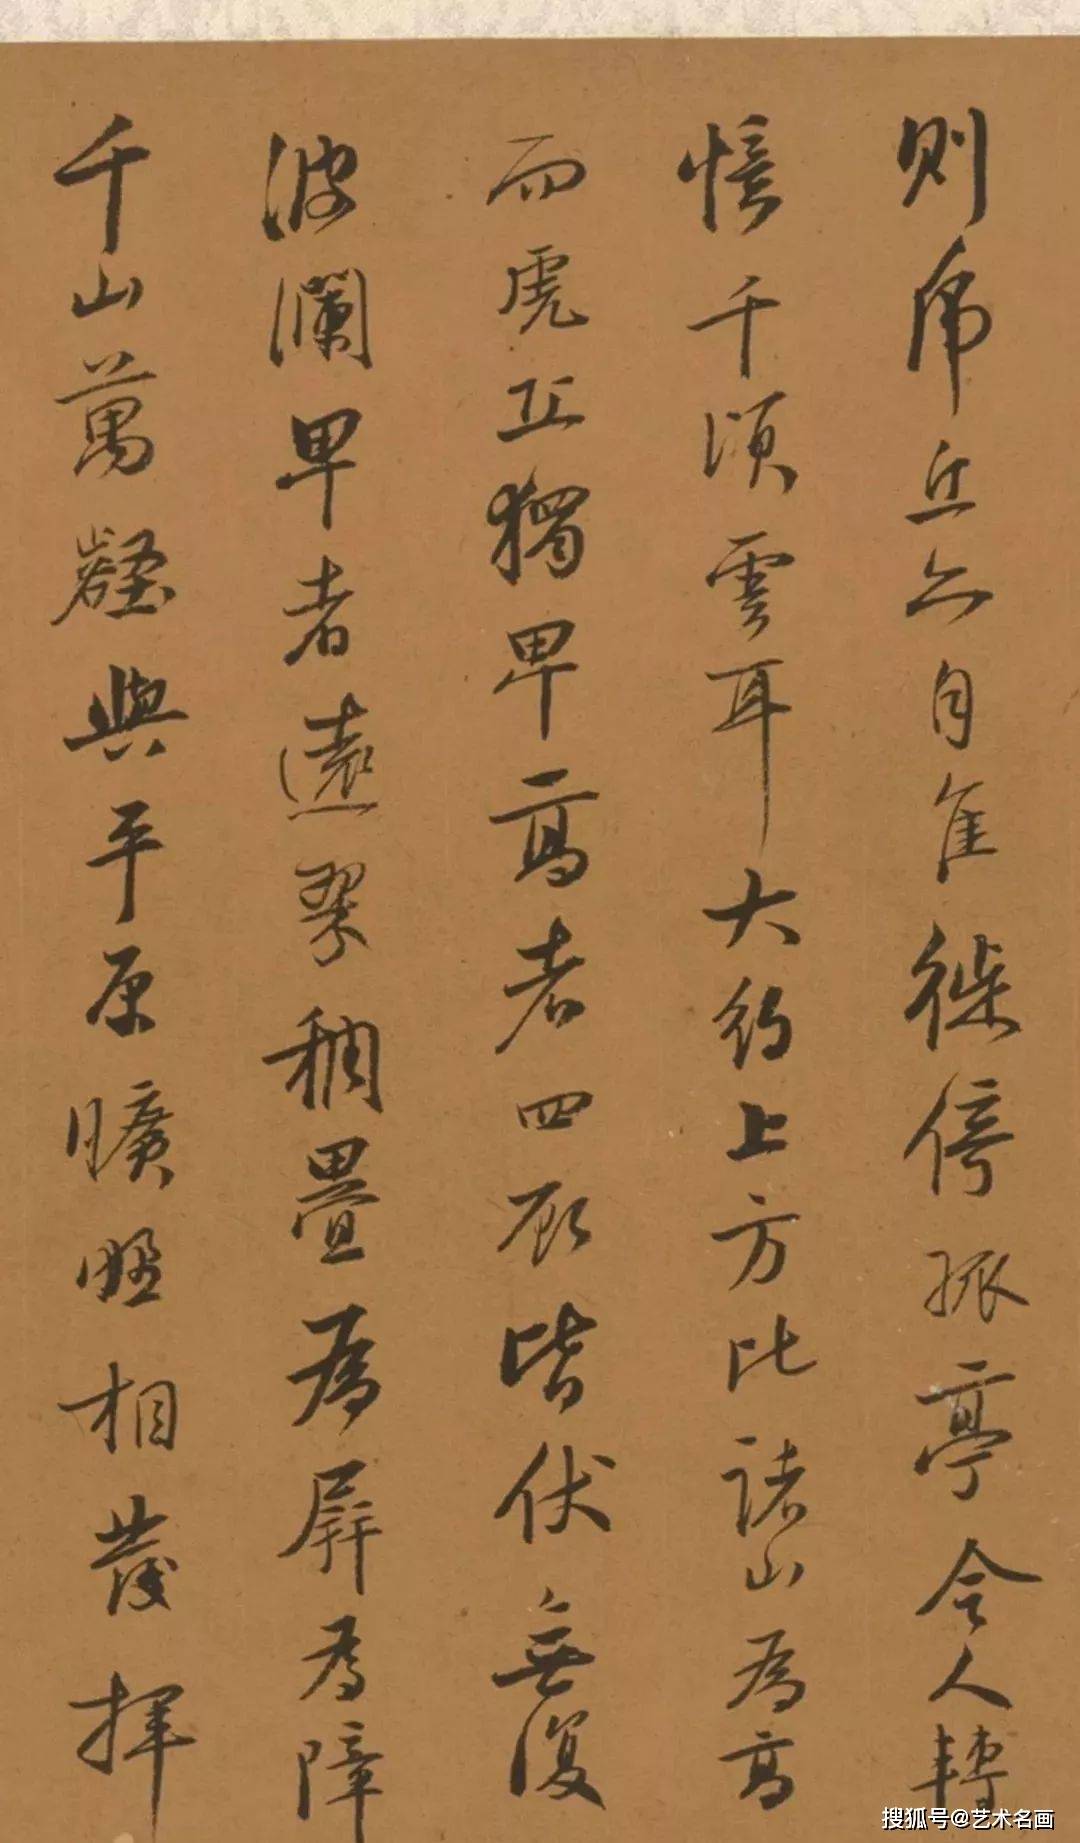 則虎丘亦自佳徙倚孤亭令人轉
憶千頃雲耳大約上方比諸山為高
而虎丘獨卑高者四顧皆伏無復
波瀾卑者遠翠稠疊為屏為障
千山萬壑與平原曠野相發揮
搜狐号@艺术名画